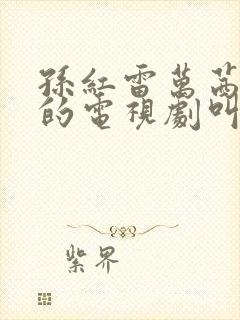 孫紅雷萬茜
的電視劇叫
紫界